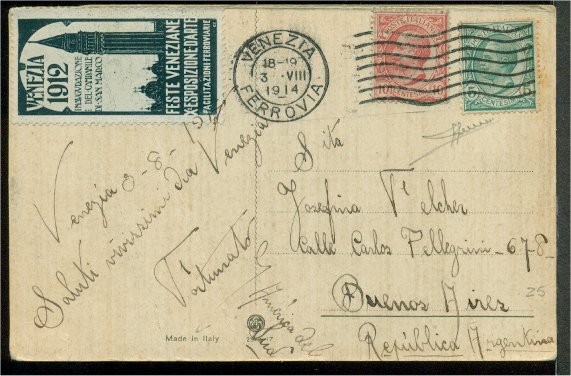 VENEZIA
1912
INAUGURAZIONE
DEL CAMPANILE
DI SAN MARCO
FESTE VENEZIANE
ESPOSIZIONE D'ARTE
FACILITAZIONI FERROVIARIE
VENEZIA
18-19
3 · VIII
1914
FERROVIA
POSTE ITALIANE
10 CENTESIMI 10
Venezia 3-8-
Saluti vivissimi da Venezia
Fortunato
América del
Sud
Made in Italy
Sita
Josefina Felcher
Calle Carlos Pellegrini - 678-
Buenos Aires
República Argentina
25